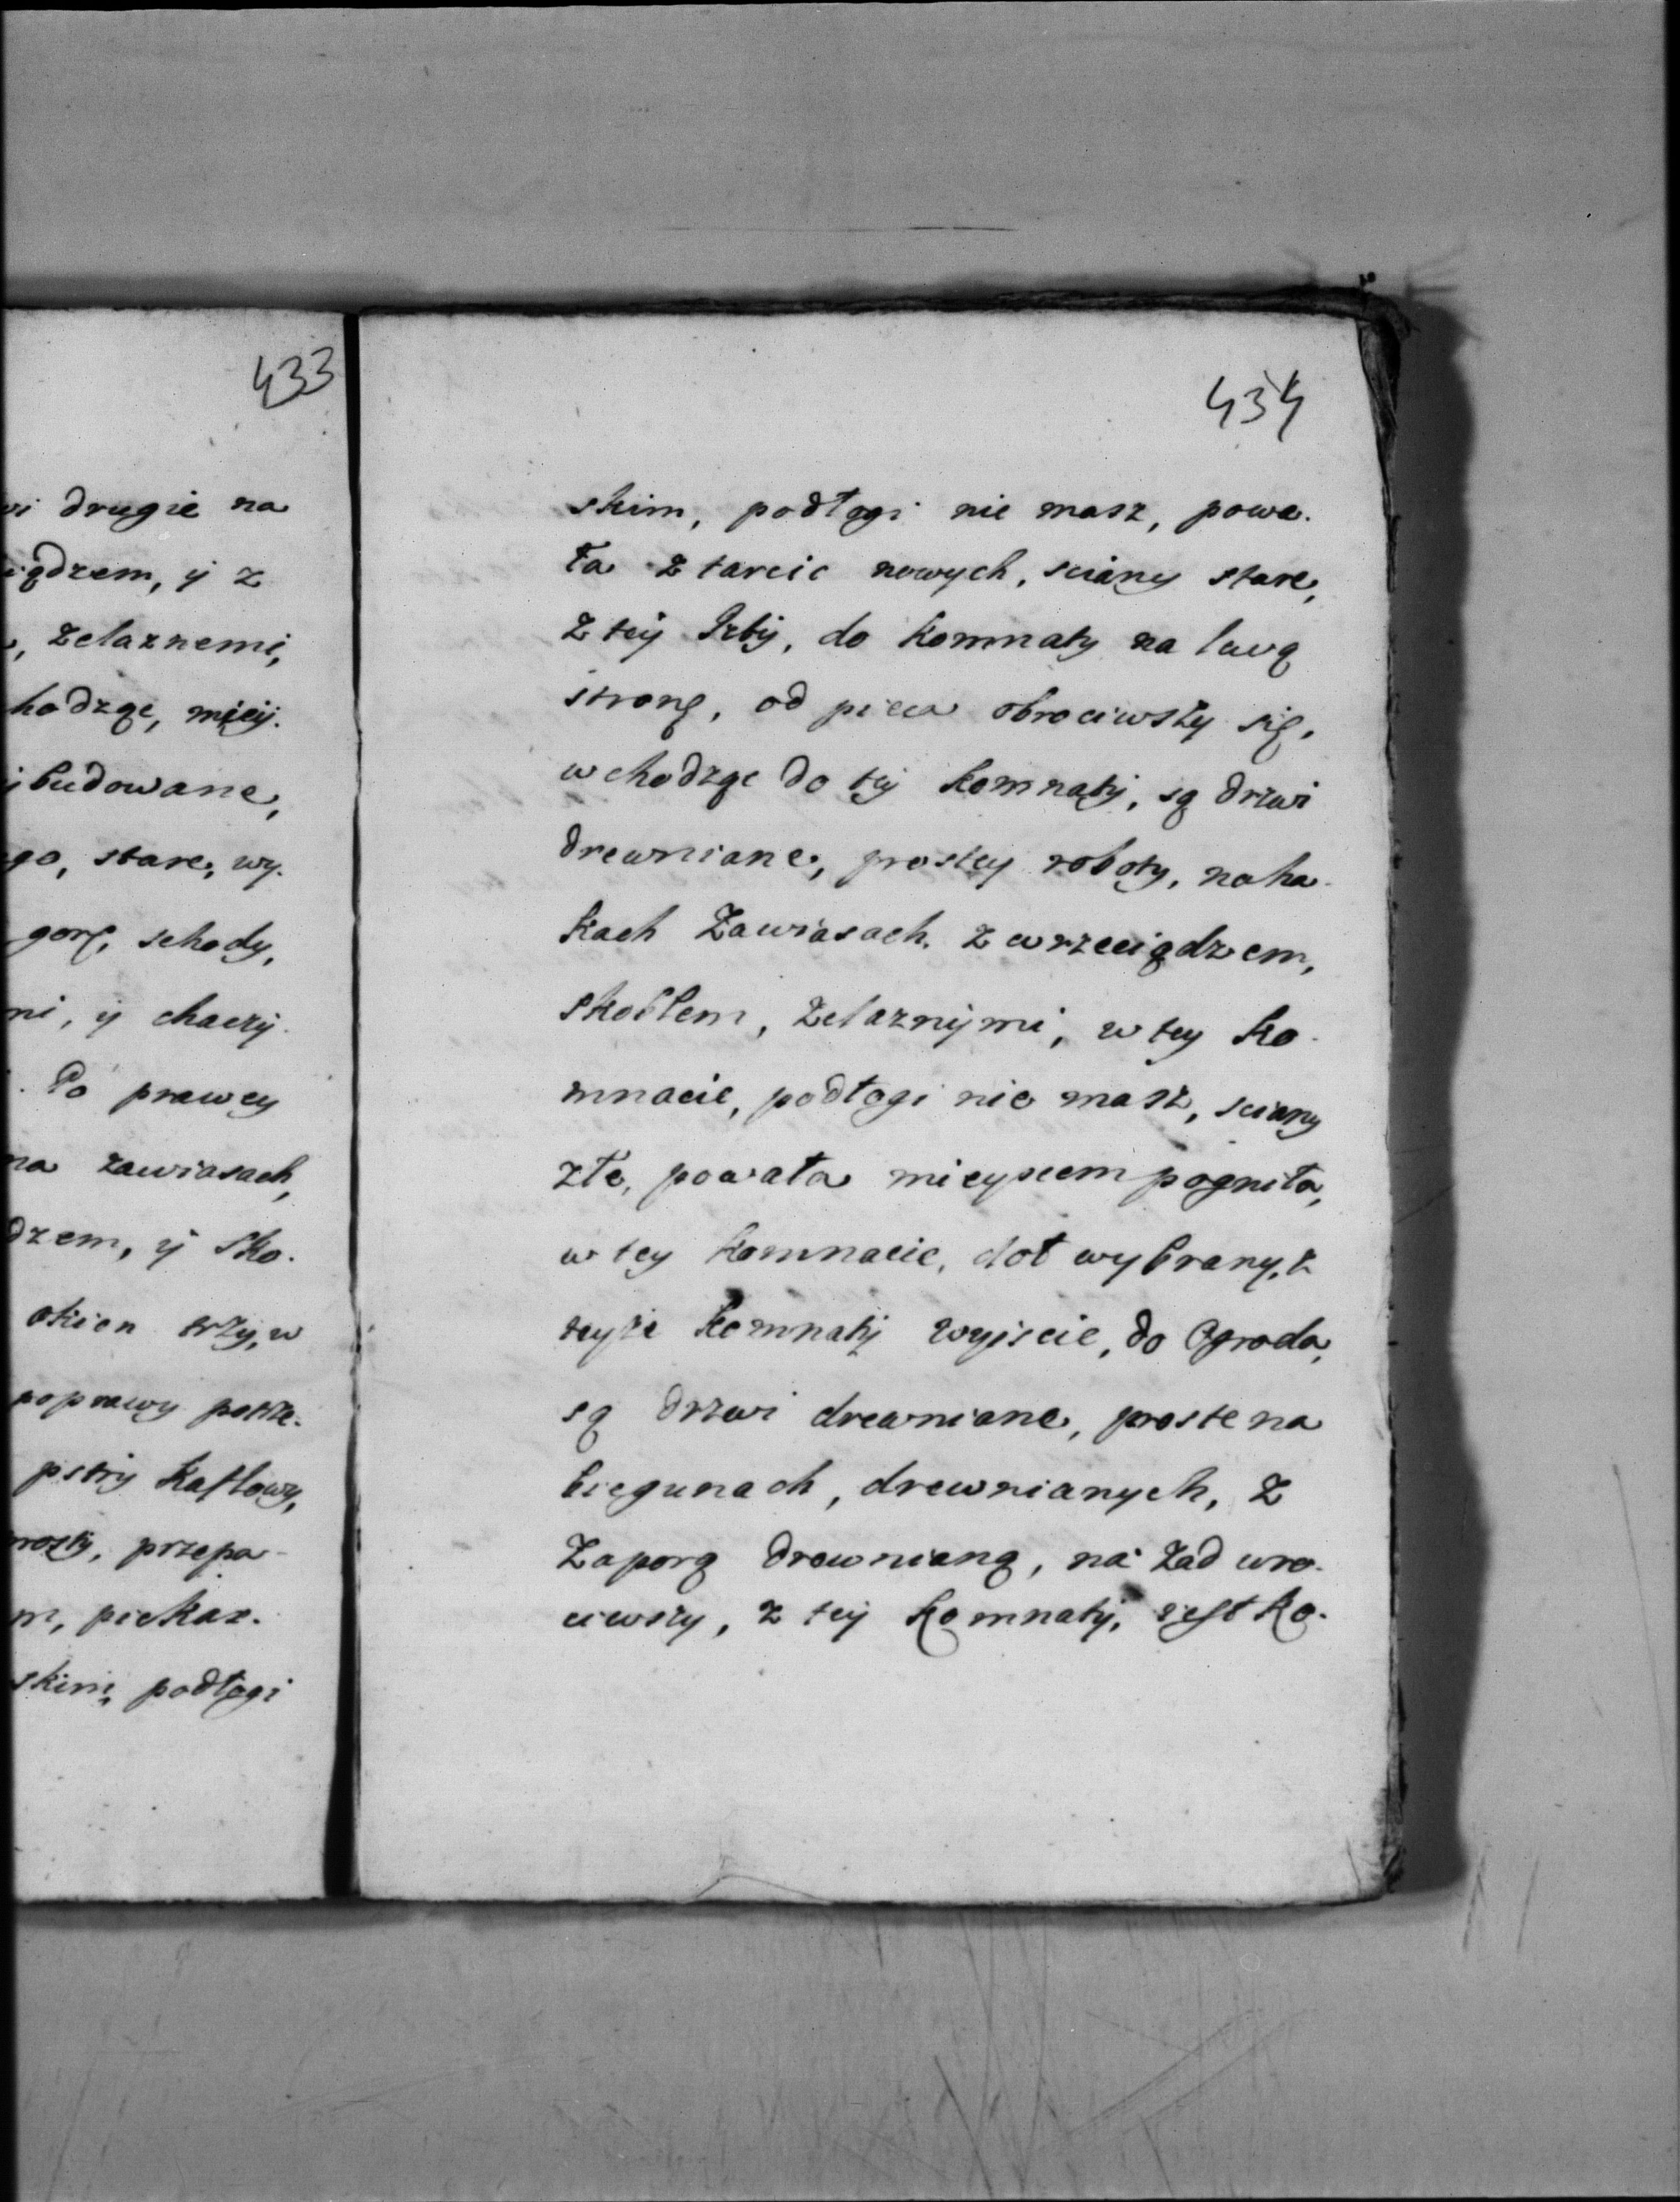 433
wi drugie na
iądzem, ÿ z
, żelaznemi,
hodząc, mieÿ.
i budowane,
go, stare, wy.
gorę, schody,
mi, ÿ chaczÿ.
Po prawey
na zawiasach,
dzem, ÿ sko.
okien trzy, w
poprawy potrze.
pstrÿ kaflowy,
prosty, przepa-
m, piekar.
skim, podłogi
434
skim, podłogi nie masz, powa.
ła z tarcic nowych, sciany stare,
z teÿ Izbÿ, do komnaty na lewą
stronę, od pieca obrociwszy się,
wchodząc do teÿ komnatÿ, są drzwi
drewniane, prostey roboty, na ha-
kach zawiasach, z wrzeciądzem,
skoblem, żelaznÿmi, w tey ko-
mnacie, podłogi nie masz, sciany
złe, powała mieyscem pogniła,
w tey komnacie, doł wybrany, z
teyże komnatÿ wyjscie, do Ogroda,
są drzwi drewniane, proste na
biegunach, drewnianych, z
zaporą drewnianą, na zad wro-
ciwszy, z teÿ komnatÿ, jest ko.